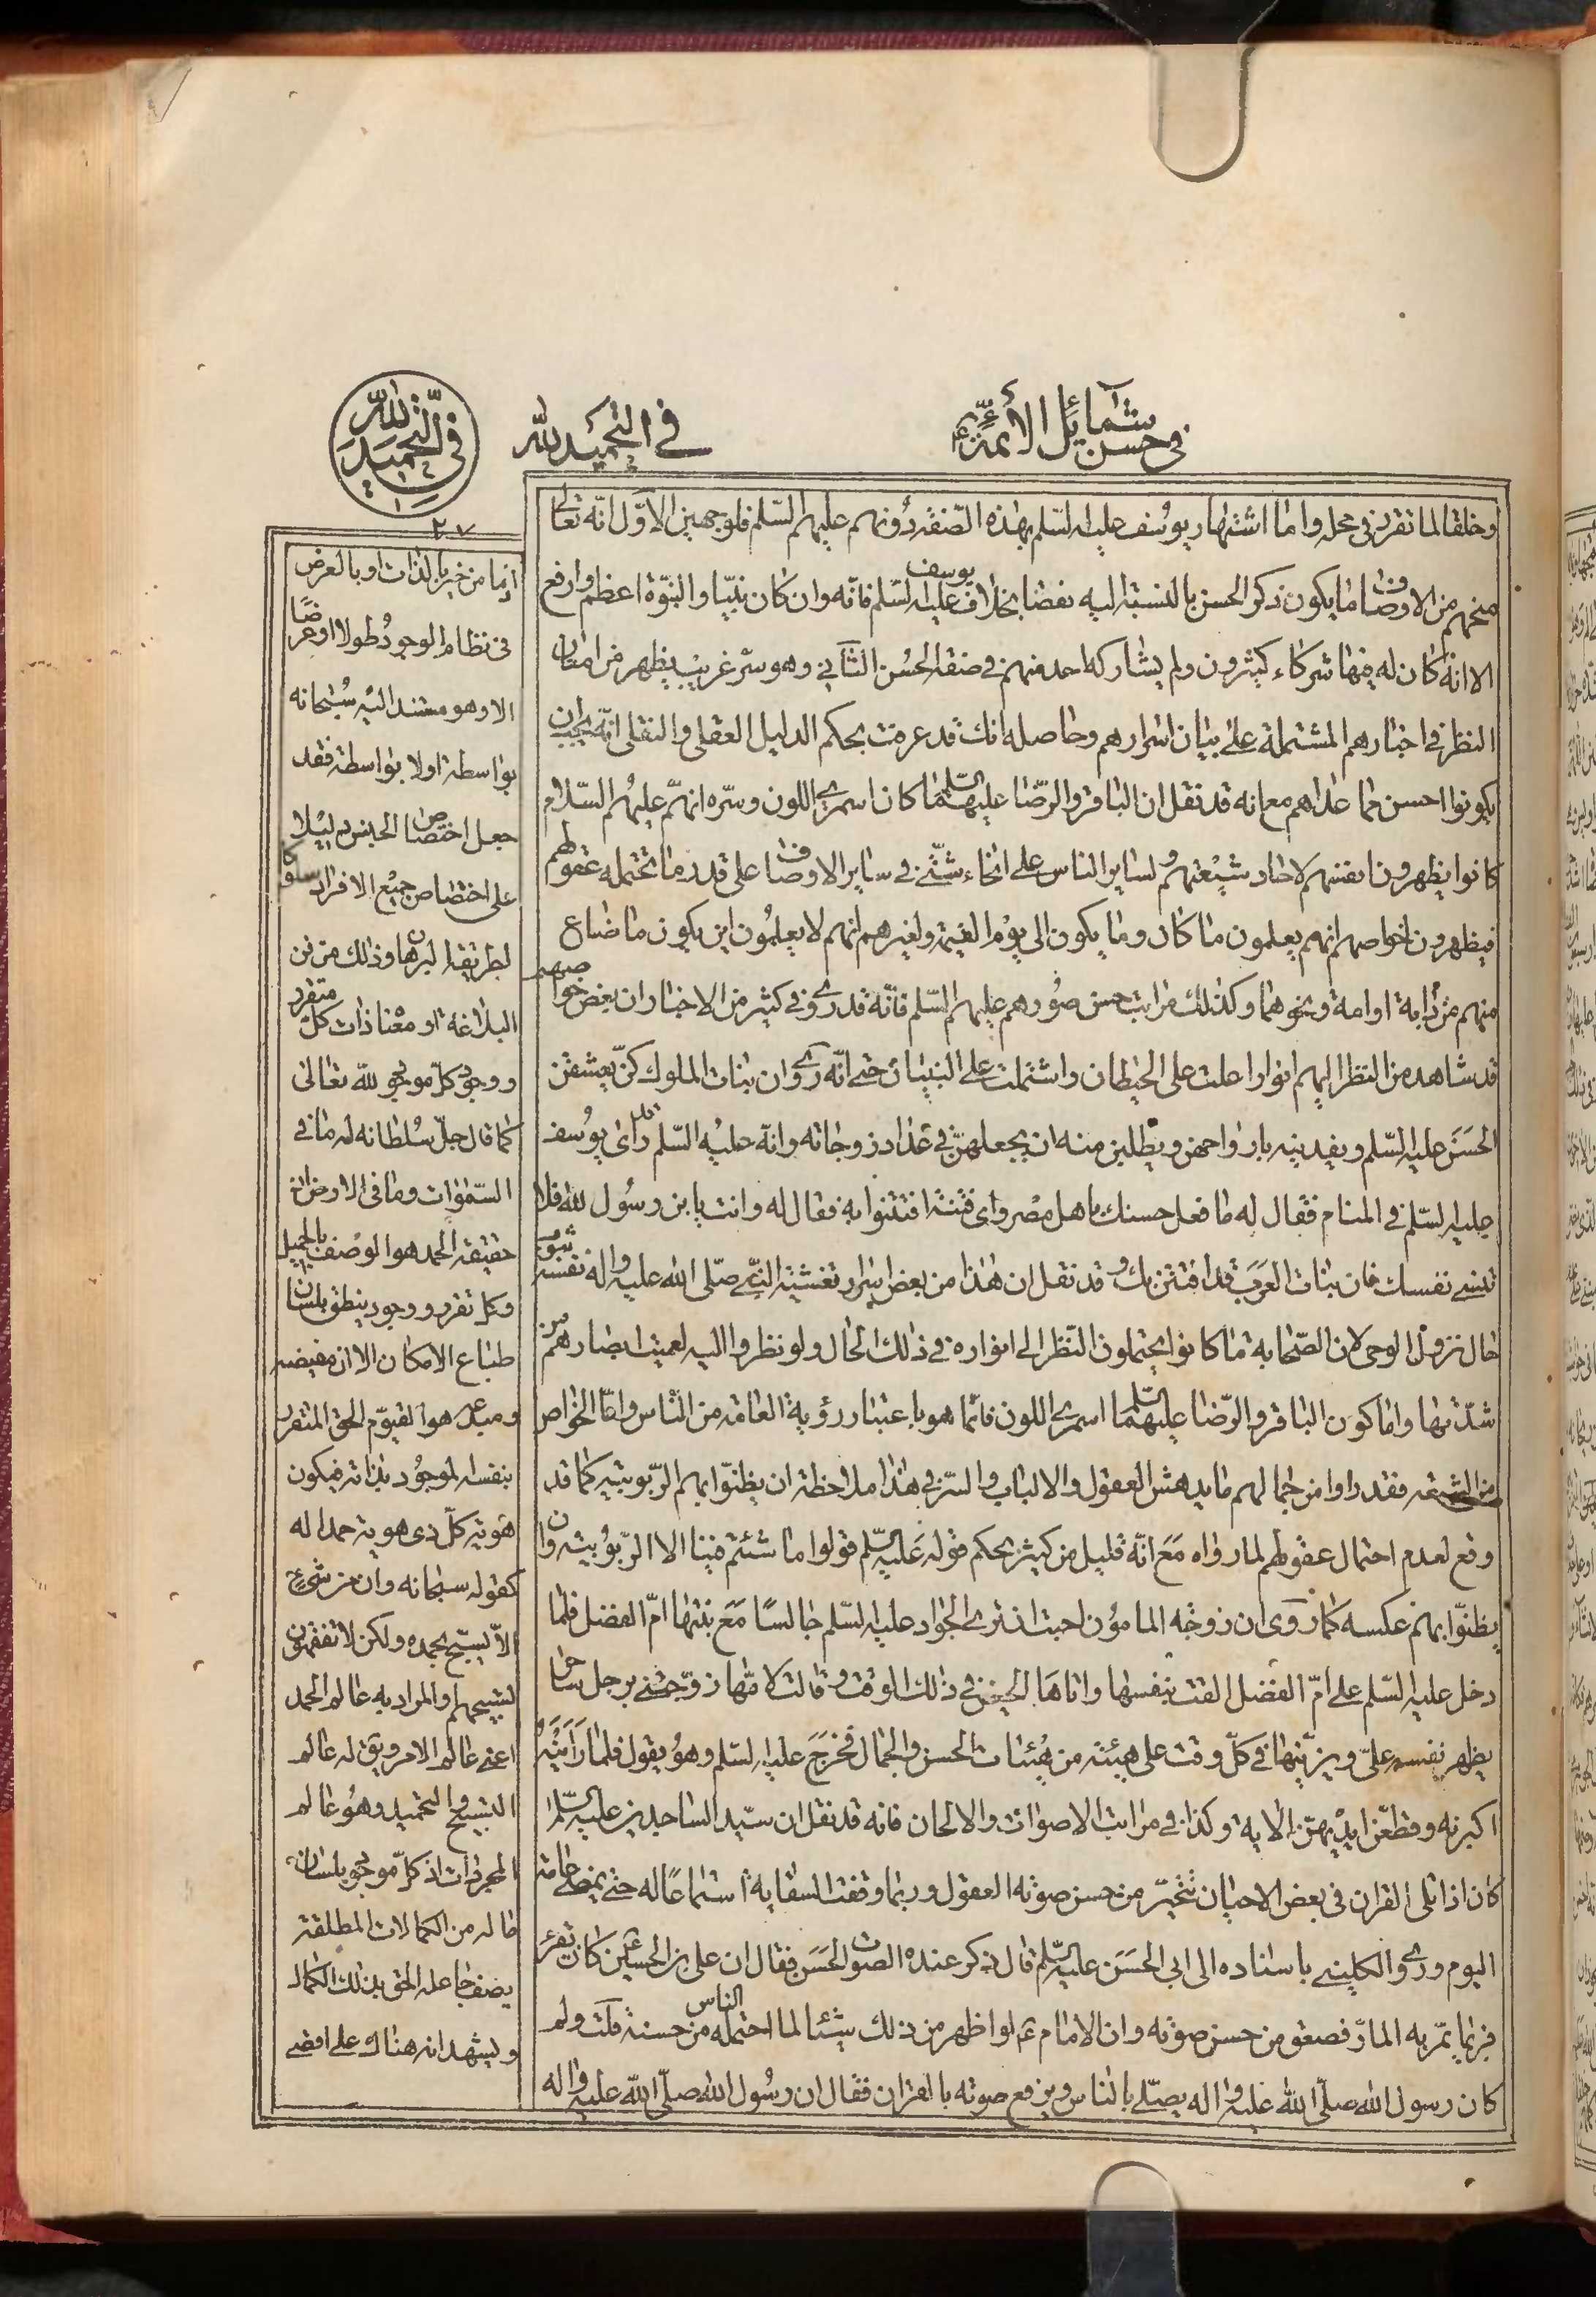 في حسن شمائل الأئمة ع
في التحميد لله
في التحميد لله
٢٧
وخلقا لما تقرر في محله واما اشتهار يوسف عليه السلم بهذه الصفة دونهم عليهم السلم فلوجهين الاول انه تعالى
منحهم من الاوصاف ما يكون ذكر الحسن بالنسبة اليه نقصا بخلاف يوسف عليه السلم فانه وان كان نبيا والنبوة اعظم وارفع
الا انه كان له فيها شركاء كثيرون ولم يشاركه احد منهم في صفة الحسن الثاني وهو سر غريب يظهر من امعان
النظر في اخبارهم المشتملة على بيان اسرارهم وحاصله انك قد عرفت بحكم الدليل العقلي والنقلي انه يجب ان
يكونوا احسن مما عداهم مع انه قد نقل ان الباقر والرضا عليهما السلم كانا اسمري اللون وسره انهم عليهم السلام
كانوا يظهرون انفسهم لاحاد شيعتهم ولساير الناس على انحاء شتى في ساير الاوصاف على قدر ما تحتمله عقولهم
فيظهرون لخواصهم انهم يعلمون ما كان وما يكون الى يوم القيمة ولغيرهم انهم لا يعلمون اين يكون ما ضاع
منهم من دابة او امة ونحوهما وكذلك مراتب حسن صورهم عليهم السلم فانه قد روي في كثير من الاخبار ان بعض خواصهم
قد شاهد من النظر اليهم انوارا علت على الحيطان واشتملت على البنيان حتى انه روي ان بنات الملوك كن يعشقن
الحسن عليه السلم ويفدينه بارواحهن ويطلبن منه ان يجعلهن في عداد زوجاته وانه عليه السلم قد راى يوسف
عليه السلم في المنام فقال له ما فعل حسنك باهل مصر واي فتنة افتتنوا به فقال له وانت يا بن رسول الله فلا
تنسى نفسك فان بنات العرب قد افتتن بك وقد نقل ان هذا من بعض اسرار تغشية النبي صلى الله عليه واله نفسه بثوب
حال نزول الوحي لان الصحابة ما كانوا يحتملون النظر الى انواره في ذلك الحال ولو نظروا اليه لعميت ابصارهم من
شدتها واما كون الباقر والرضا عليهما السلم اسمري اللون فانما هو باعتبار رؤية العامة من الناس واما الخواص
من الشيعة فقد راوا من جمالهم ما يدهش العقول والالباب والسر في هذا ملاحظة ان يظنوا بهم الربوبية كما قد
وقع لعدم احتمال عقولهم لما راواه مع انه قليل من كثير بحكم قوله عليه السلم قولوا ما شئتم فينا الا الربوبية وان
يظنوا بهم عكسه كما روى ان زوجة المامون احبت ان ترى الجواد عليه السلم جالسا مع بنتها ام الفضل فلما
دخل عليه السلم على ام الفضل القت بنفسها واتاها الحيض في ذلك الوقت وقالت لامها زوجتني برجل ساحر
يظهر نفسه علي ويزينها في كل وقت على هيئة من هيئات الحسن والجمال فخرج عليه السلم وهو يقول فلما راينه
اكبرنه وقطعن ايديهن الاية وكذا في مراتب الاصوات والالحان فانه قد نقل ان سيد الساجدين عليه السلم
كان اذا تلى القران في بعض الاحيان تتحير من حسن صوته العقول وربما وقفت السقاية استماعا له حتى يمضي عامة
اليوم وروي الكليني باسناده الى ابي الحسن عليه السلم قال ذكر عنده الصوت الحسن فقال ان علي بن الحسين ع كان يقرء
فربما يمر به المار فصعق من حسن صوته وان الامام ع لو اظهر من ذلك شيئا لما احتمله الناس من حسنة قلت ولم
كان رسول الله صلى الله عليه واله يصلي بالناس ويرفع صوته بالقران فقال ان رسول الله صلى الله عليه واله
انما من خير بالذات او بالعرض
في نظام الوجود طولا او عرضا
الا وهو مستند اليه سبحانه
بواسطة او لا بواسطة فقد
جعل اختصاص الجنس دليلا
على اختصاص جميع الافراد سلوكا
لطريقة البرهان وذلك من فن
البلاغة او معنا ذات كل متقرر
ووجود كل موجود لله تعالى
كما قال جل سلطانه له ما في
السموات وما في الارض ان
حقيقة الحمد هو الوصف بالجميل
وكل تقرر ووجود ينطق بلسان
طباع الامكان الا ان مفيضه
ومبدعه هو القيوم الحق المتقرر
بنفسه الموجود بذاته فيكون
هوية كل ذي هوية حمدا له
كقوله سبحانه وان من شيء
الا يسبح بحمده ولكن لا تفقهون
تسبيحهم والمراد به عالم الحمد
اعني عالم الامر ويق له عالم
التسبيح والتحميد وهو عالم
المجردات اذ كل موجود بلسان
ما له من الكمالات المطلقة
يصف جاعله الحق بذلك الكمال
ويشهد انه هناك على اقصى